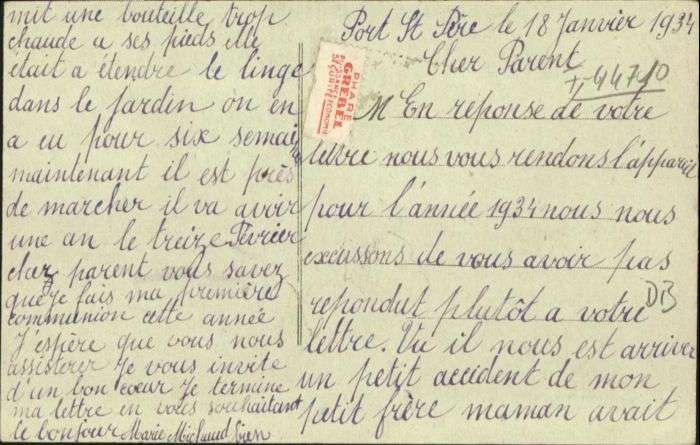 Port St Père le 18 Janvier 1934
Cher Parent
En reponse de votre
lettre nous vous rendons l'appareil
pour l'année 1934 nous nous
excussons de vous avoir pas
repondut plutôt a votre
lettre. Vu il nous est arriver
un petit accident de mon
petit frère maman avait
mit une bouteille trop
chaude a ses pieds elle
etait a étendre le linge
dans le jardin on en
a eu pour six semaines
maintenant il est près
de marcher il va avoir
une an le treize Fevrier
cher parent vous savez
que je fais ma première
communion cette année
J'espère que vous nous
assisterer Je vous invite
d'un bon coeur Je termine
ma lettre en vous souhaitant
le bonjour Marie Michaud
PHARE
GREBEL
SECURITE ECONOMIE
DB